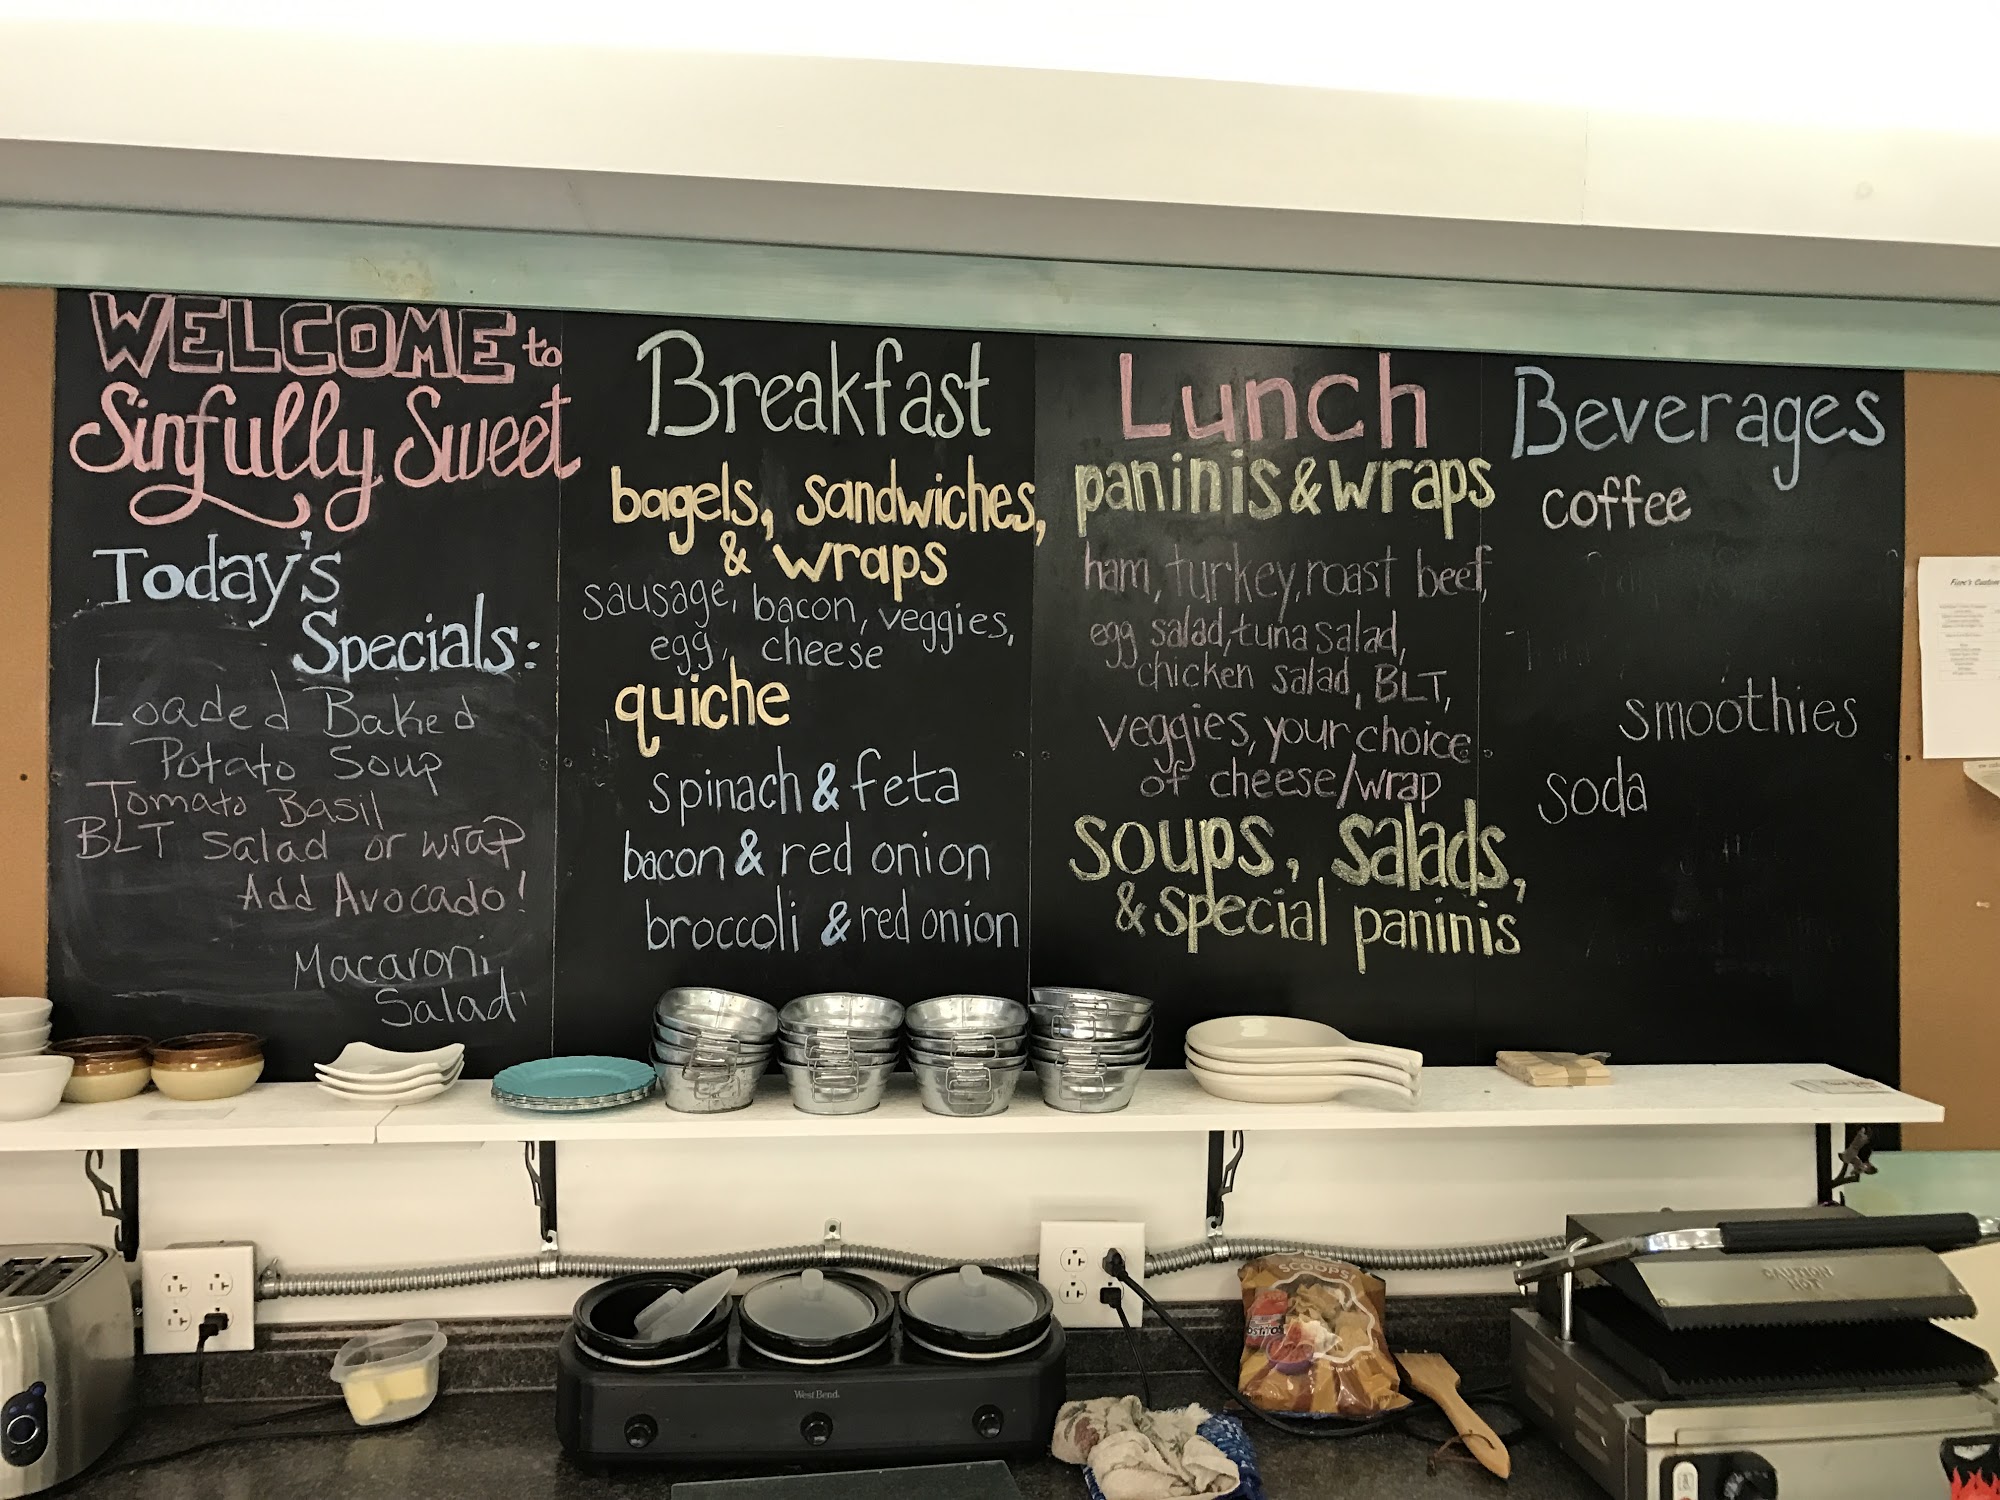 WELCOME to
Sinfully Sweet
Today's
Specials:
Loaded Baked
Potato Soup
Tomato Basil
BLT Salad or wrap
Add Avocado!
Macaroni
Salad
Breakfast
bagels, sandwiches,
& wraps
sausage, bacon, veggies,
egg, cheese
quiche
spinach & feta
bacon & red onion
broccoli & red onion
Lunch
paninis & wraps
ham, turkey, roast beef,
egg salad, tuna salad,
chicken salad, BLT,
veggies, your choice
of cheese/wrap
soups, salads,
& special paninis
Beverages
coffee
smoothies
soda
West Bend
SCOOPS!
CAUTION
HOT